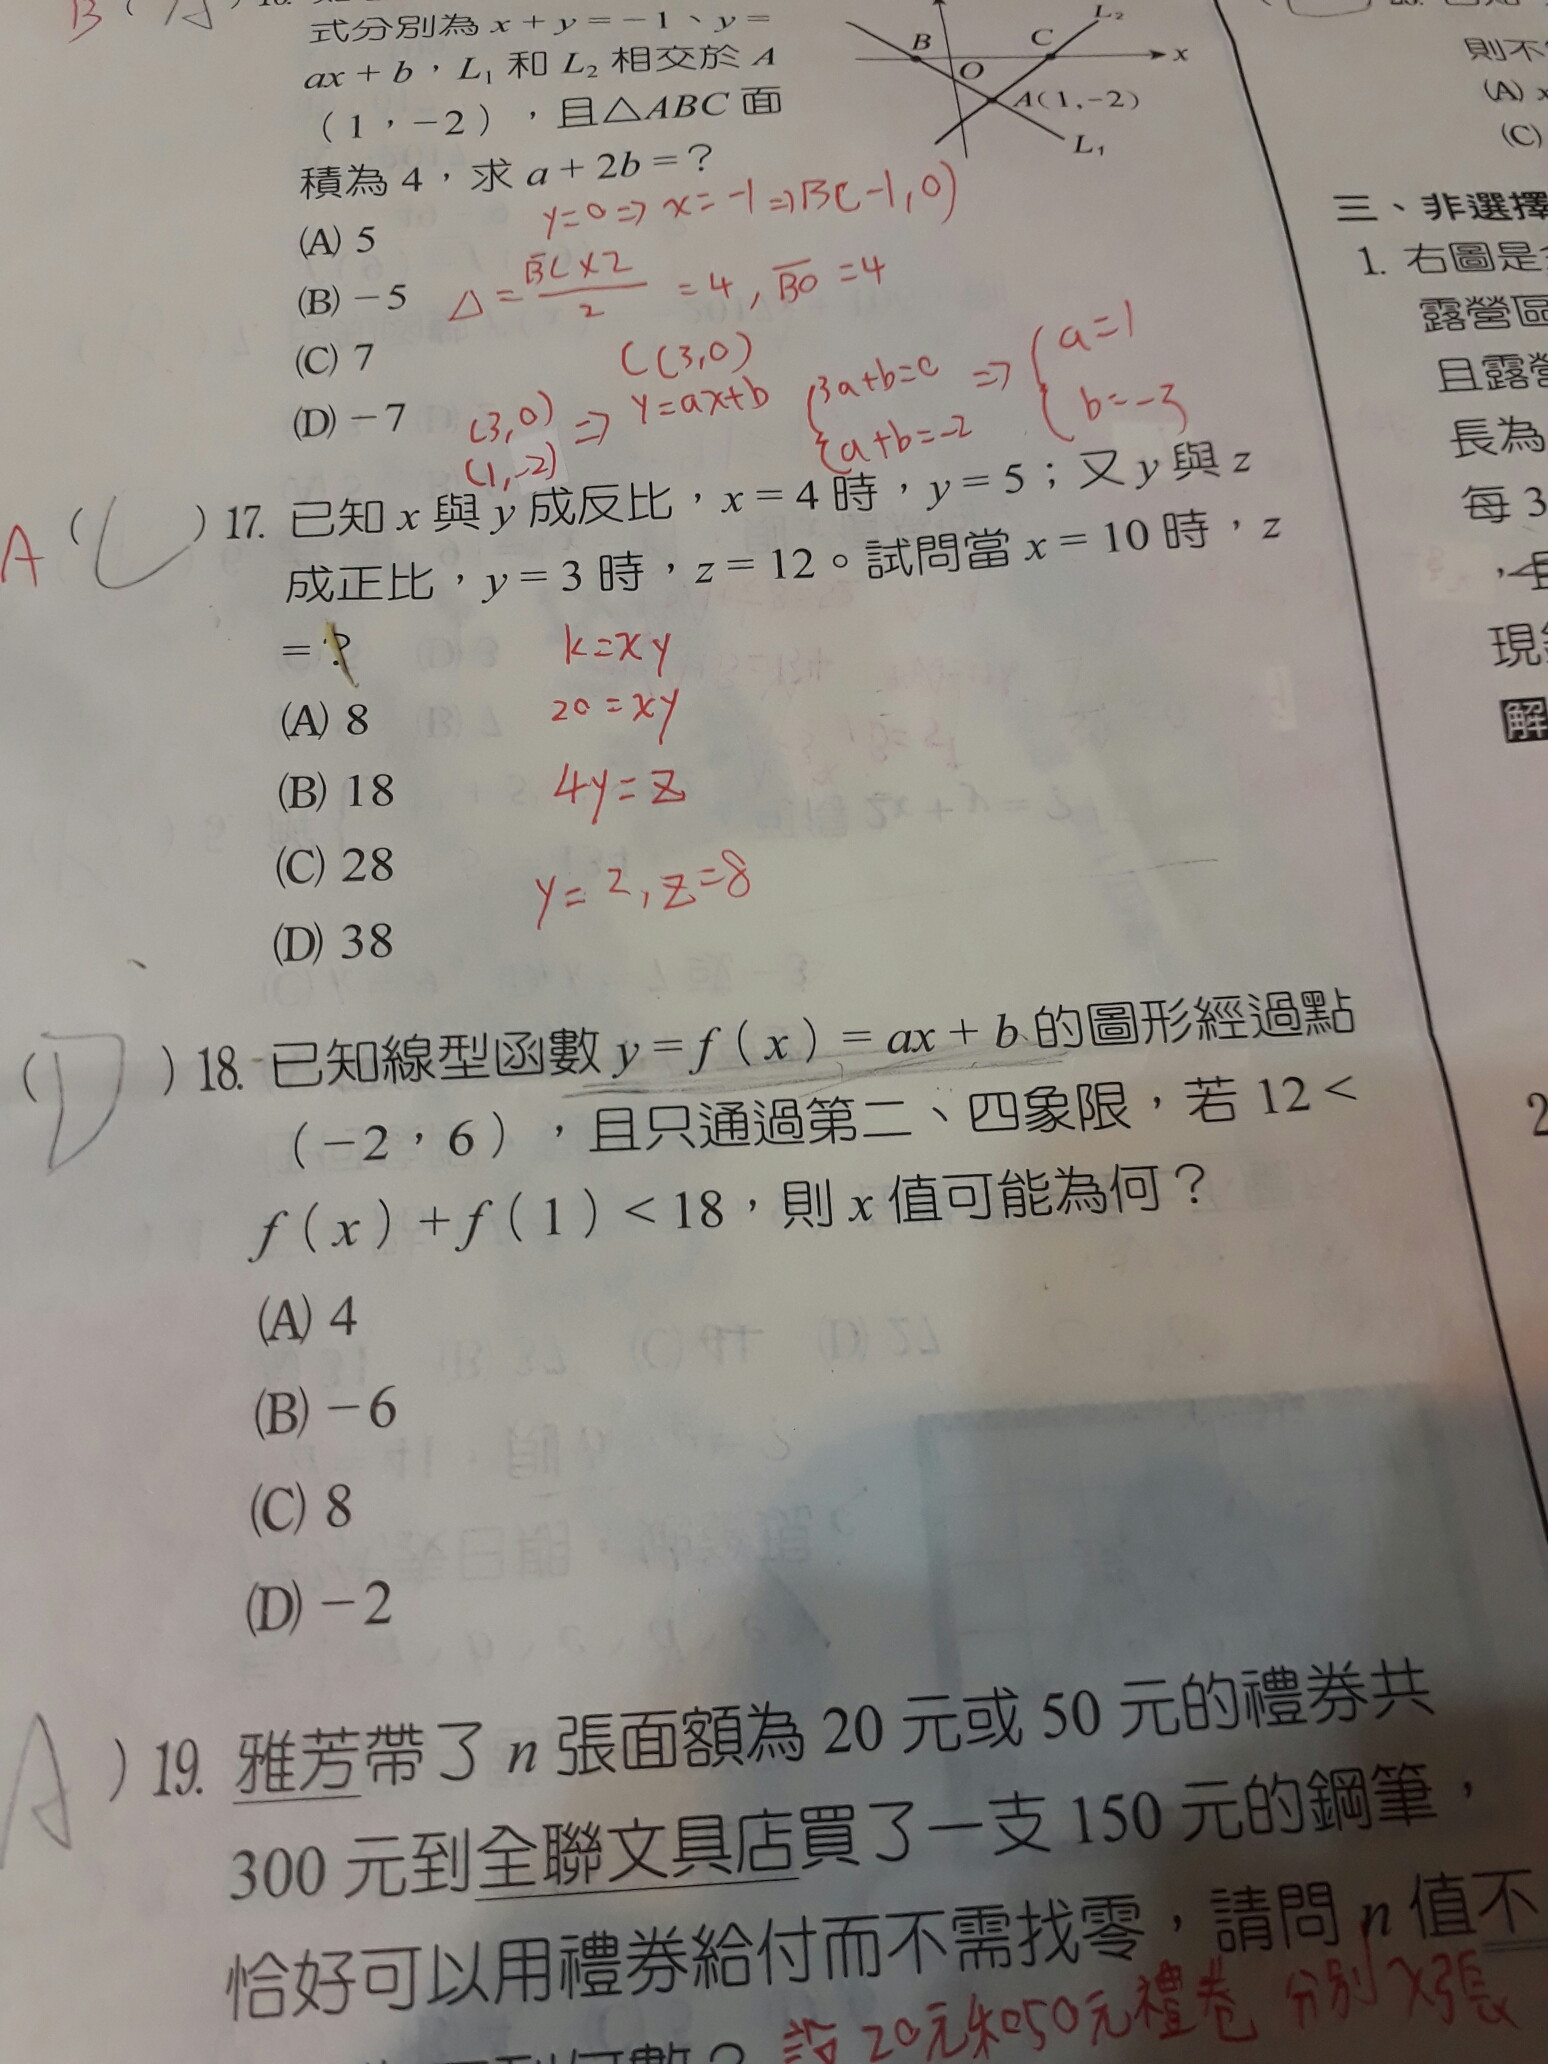 式分別為 x + y = −1、y =
ax + b，L₁ 和 L₂ 相交於 A
（1，−2），且△ABC 面
積為 4，求 a + 2b = ?
(A) 5
(B) −5
(C) 7
(D) −7
B
C
L₂
x
O
A(1,−2)
L₁
y=0 => x=-1 => B(-1,0)
△ = BC×2/2 = 4, BO = 4
C(3,0)
(3,0)
(1,-2)
=> y=ax+b
3a+b=0
a+b=-2
=> a=1
b=-3
A (C) 17. 已知 x 與 y 成反比，x = 4 時，y = 5；又 y 與 z
成正比，y = 3 時，z = 12。試問當 x = 10 時，z
= ?
(A) 8
(B) 18
(C) 28
(D) 38
k=xy
20=xy
4y=z
y=2, z=8
(D) 18. 已知線型函數 y = f（x）= ax + b 的圖形經過點
（−2，6），且只通過第二、四象限，若 12 <
f（x）+ f（1）< 18，則 x 值可能為何？
(A) 4
(B) −6
(C) 8
(D) −2
A ) 19. 雅芳帶了 n 張面額為 20 元或 50 元的禮券共
300 元到全聯文具店買了一支 150 元的鋼筆，
恰好可以用禮券給付而不需找零，請問 n 值不
設20元和50元禮卷 分別x張
則不
(A) x
(C)
三、非選擇
1. 右圖是
露營區
且露營
長為
每 3
，且
現
解
2